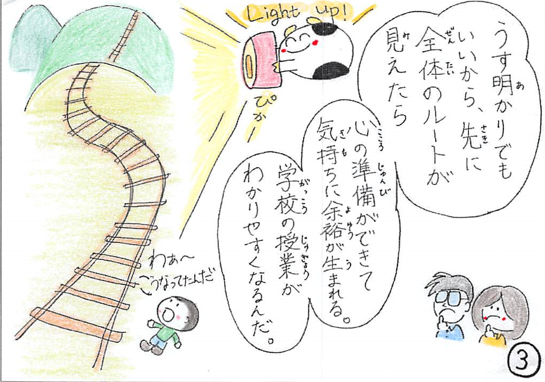 Light up!
うす明かりでも
いいから、先に
全体のルートが
見えたら
ぴかー
心の準備ができて
気持ちに余裕が生まれる。
学校の授業が
わかりやすくなるんだ。
わぁ～
こうなってたんだ
3